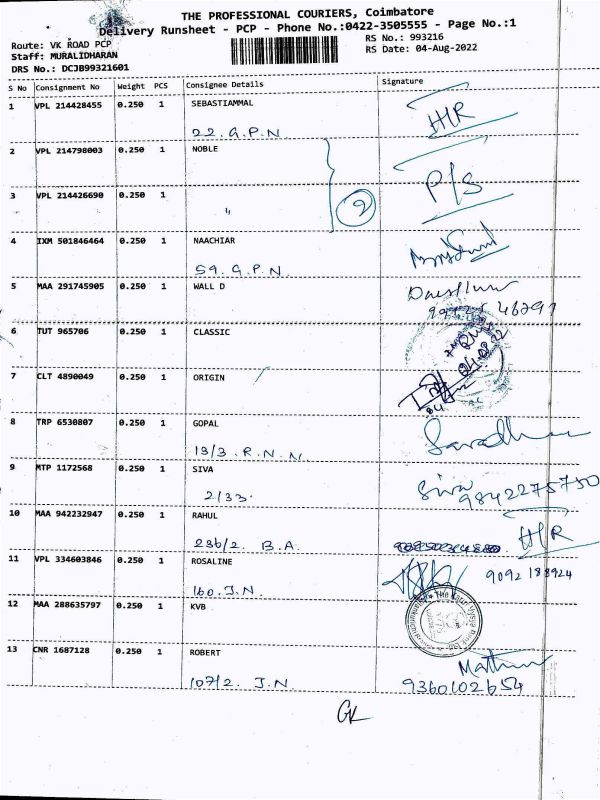 THE PROFESSIONAL COURIERS, Coimbatore
Delivery Runsheet - PCP - Phone No.:0422-3505555 - Page No.:1
Route: VK ROAD PCP
Staff: MURALIDHARAN
DRS No.: DCJB99321601
RS No.: 993216
RS Date: 04-Aug-2022
S No Consignment No Weight PCS Consignee Details Signature
1 VPL 214428455 0.250 1 SEBASTIAMMAL
22. G.P.N H/R
2 VPL 214798003 0.250 1 NOBLE
P/S
3 VPL 214426690 0.250 1
" 2
4 IXM 501846464 0.250 1 NAACHIAR
59. G.P.N.
5 MAA 291745905 0.250 1 WALL D
6 TUT 965706 0.250 1 CLASSIC
7 CLT 4890049 0.250 1 ORIGIN
8 TRP 6530807 0.250 1 GOPAL
13/3. R.N.N.
9 MTP 1172568 0.250 1 SIVA
2/33. Siva 9842275750
10 MAA 942232947 0.250 1 RAHUL H/R
236/2. B.A.
11 VPL 334603846 0.250 1 ROSALINE
160. J.N. 9092 188924
12 MAA 288635797 0.250 1 KVB
13 CNR 1687128 0.250 1 ROBERT
107/2. J.N 9360102654